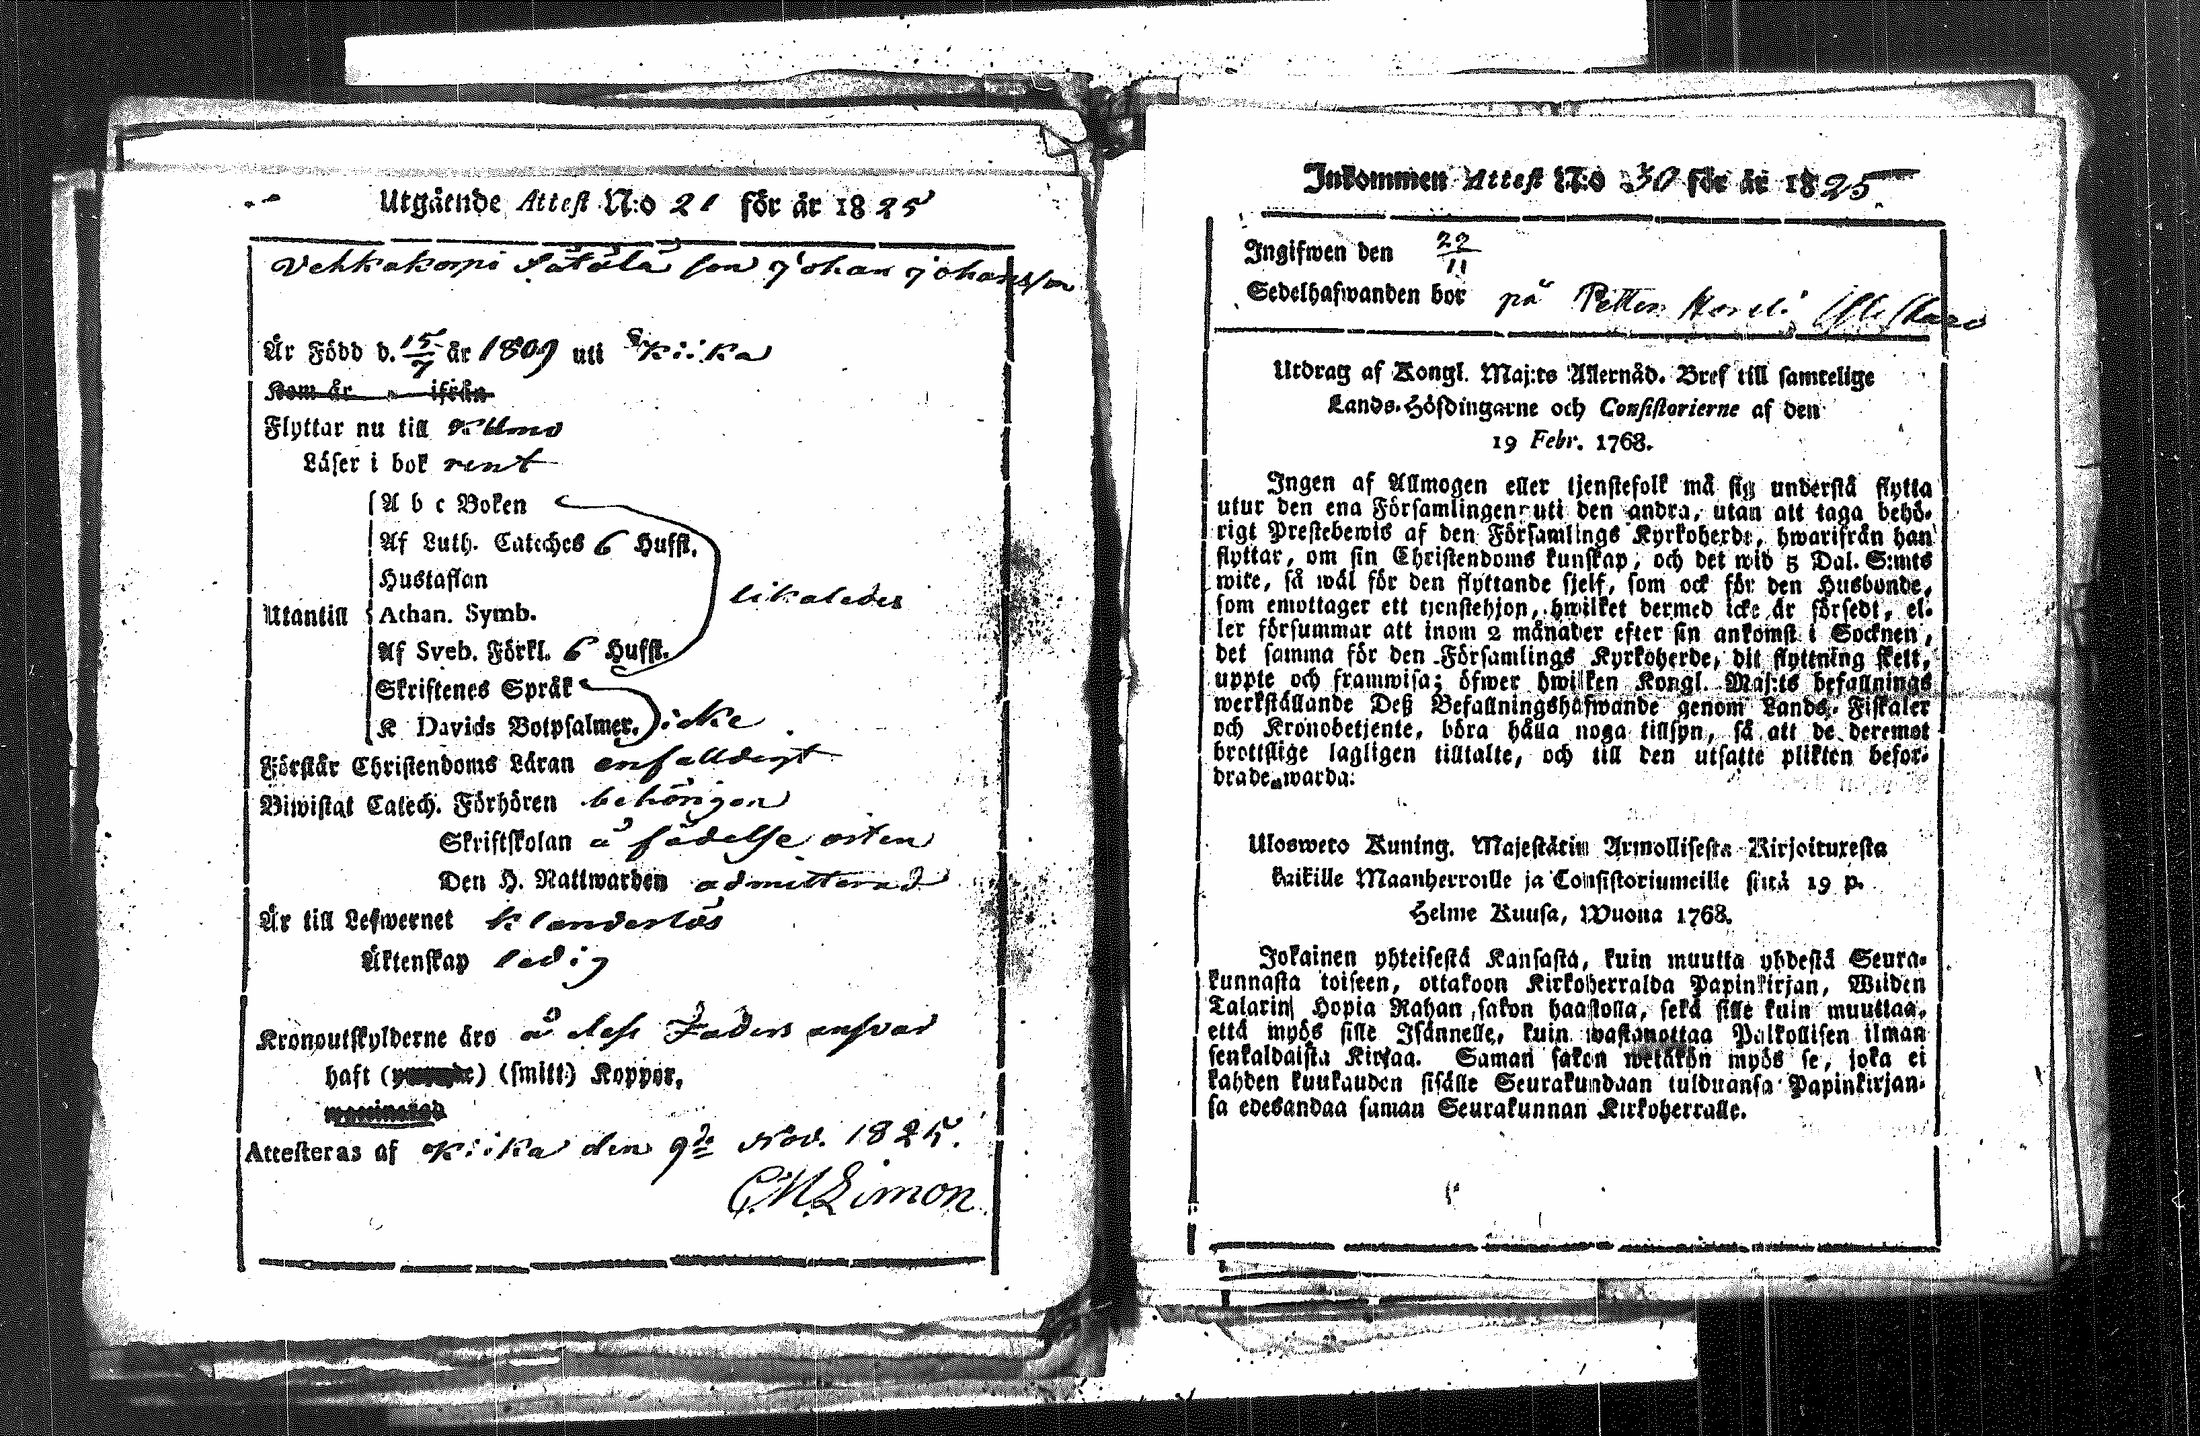 Utgående Attest N:o 21 för år 1825
Vehkakorpi Sätälä son Johan Johansson
Är Född d. 15/7 år 1809 uti Kiika
Kom år ifrån
Flyttar nu till
Läser i bok rent
A b c Boken
Af Luth. Cateches 6 Hufst.
Hustaflan
likaledes
Utantill Athan. Symb.
Af Sveb. Förkl. 6 Hufst.
Skriftenes Språk
K Davids Botpsalmer. icke
Förstår Christendoms Läran enfalldigt
Biwistat Catech. Förhören behörigen
Skriftskolan å födelse orten
Den H. Nattwarden admitterad
Är till Lefwernet klanderlös
Äktenskap ledig
Kronoutskylderne äro å dess Faders ansvar
haft () (smitt:) Koppor,
Attesteras af Kiika den 9de Nov. 1825.
C.M. Limon
Inkommen Attest N:o 30 för år 1825
Ingifwen den 22/11
Sedelhafwanden bor på Petter
Utdrag af Kongl. Maj:ts Allernåd. Bref till samtelige
Lands-Höfdingarne och Consistorierne af den
19 Febr. 1768.
Ingen af Allmogen eller tjenstefolk må sig understå flytta
utur den ena Församlingen uti den andra, utan att taga behö-
rigt Prestebewis af den Församlings Kyrkoherde, hwarifrån han
flyttar, om sin Christendoms kunskap, och det wid 5 Dal. S:mts
wite, så wäl för den flyttande sjelf, som ock för den Husbonde,
som emottager ett tjenstehjon, hwilket dermed icke är försedt, el-
ler försummar att inom 2 månader efter sin ankomst i Socknen,
det samma för den Församlings Kyrkoherde, dit flyttning skett,
uppte och framwisa; öfwer hwilken Kongl. Maj:ts befallnings
werkställande Deß Befallningshafwande genom Lands-Fiskaler
och Kronobetjente, böra hålla noga tillsyn, så att de deremot
brottslige lagligen tilltalte, och till den utsatte plikten befor-
drade warda.
Ulosweto Kuning. Majestätin Armollisesta Kirjoituxesta
kaikille Maanherroille ja Consistoriumeille siitä 19 p.
Helme Kuusa, Wuonna 1768.
Jokainen yhteisestä Kansasta, kuin muutta yhdestä Seura-
kunnasta toiseen, ottakoon Kirkoherralda Papinkirjan, Wiiden
Talarin Hopia Rahan sakon haastolla, sekä sille kuin muuttaa,
että myös sille Isännelle, kuin wastanottaa Palkollisen ilman
senkaldaista Kirjaa. Saman sakon wetäkön myös se, joka ei
kahden kuukauden sisälle Seurakundaan tulduansa Papinkirjan-
sa edesandaa saman Seurakunnan Kirkoherralle.